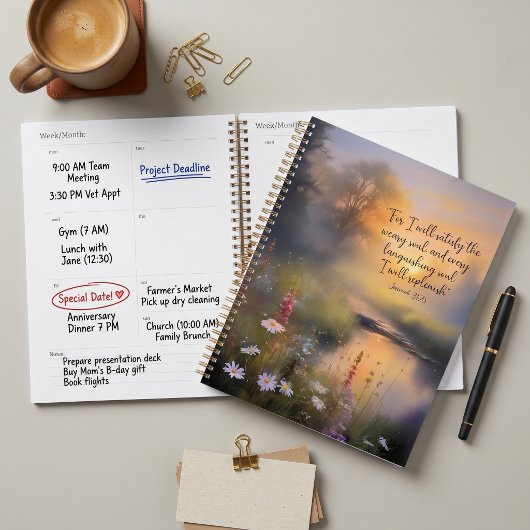 Week/Month:
mon
9:00 AM Team
Meeting
3:30 PM Vet Appt
tues
Project Deadline
wed
Gym (7 AM)
Lunch with
Jane (12:30)
thu
fri
Special Date!
Anniversary
Dinner 7 PM
sat
Farmer's Market
Pick up dry cleaning
sun
Church (10:00 AM)
Family Brunch
Notes:
Prepare presentation deck
Buy Mom's B-day gift
Book flights
Week/Month:
mon
"For I will satisfy the
weary soul, and every
languishing soul
I will replenish."